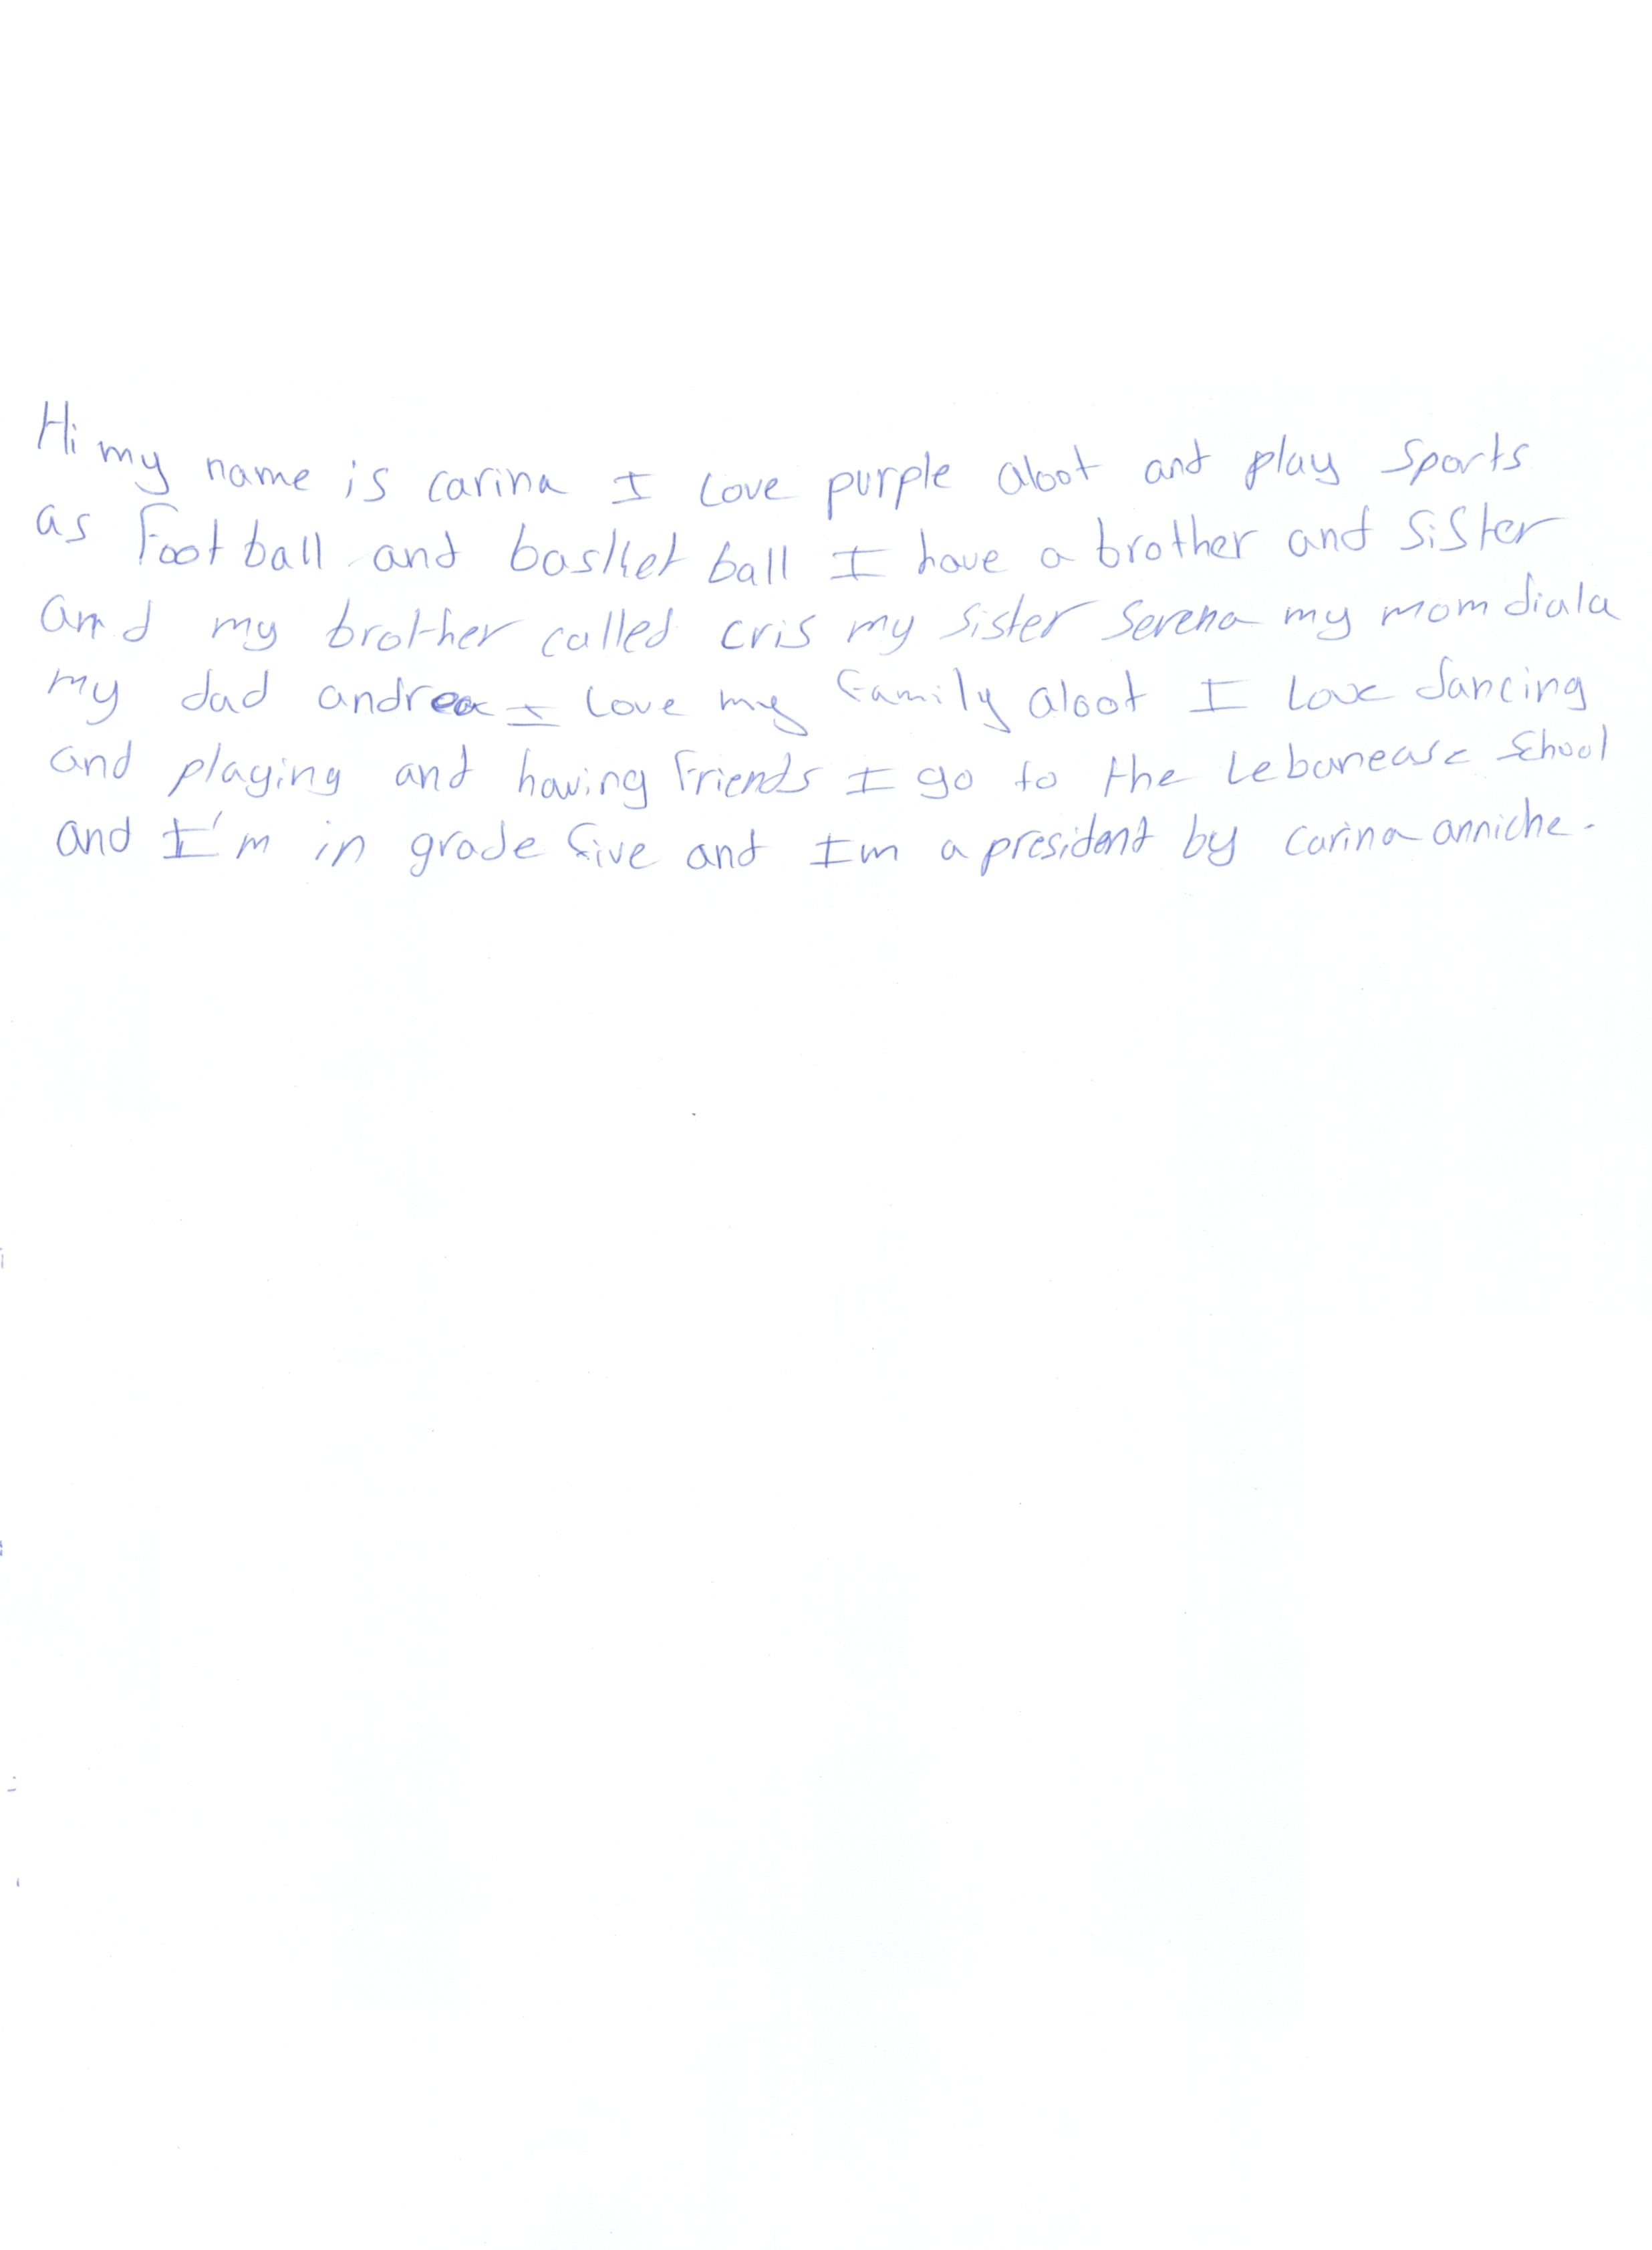 Hi my name is carina I love purple aloot and play sports
as Foot ball and basket ball I have a brother and sister
and my brother called cris my sister serena my mom diala
my dad andrea I love my family aloot I love dancing
and playing and having friends I go to the Lebanease school
and I'm in grade five and Im a president by carina anniche.